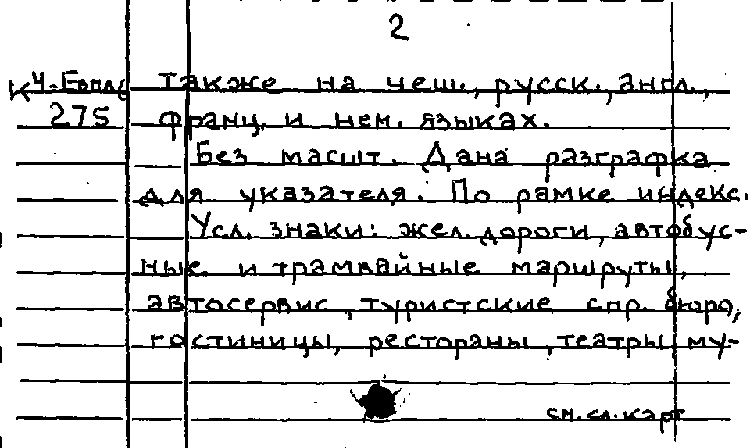 2
также на чеш., русск., англ.,
275 франц. и нем. языках.
Без масшт. Дана разграфка
для указателя. По рамке индекс.
Усл. знаки: жел. дороги, автобус-
ные и трамвайные маршруты,
автосервис, туристские спр. бюро,
гостиницы, рестораны, театры, му-
см. сл. карт